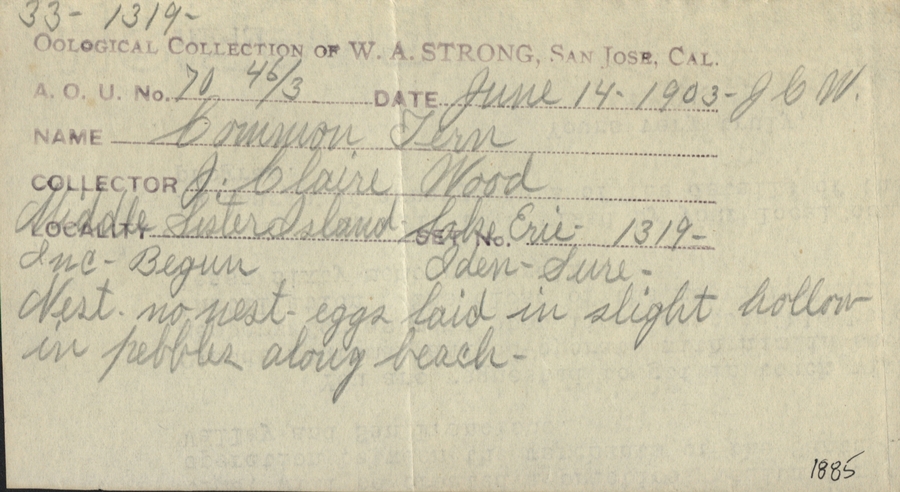 33- 1319-
OOLOGICAL COLLECTION OF W. A. STRONG, SAN JOSE, CAL.
A. O. U. No. 70 46/3 DATE June 14- 1903- J C W.
NAME Common Tern
COLLECTOR J. Claire Wood
LOCALITY Middle Sister Island- Lake Erie- SET No. 1319-
Inc- Begun Iden- Sure-
Nest. no nest- eggs laid in slight hollow
in pebbles along beach-
1885